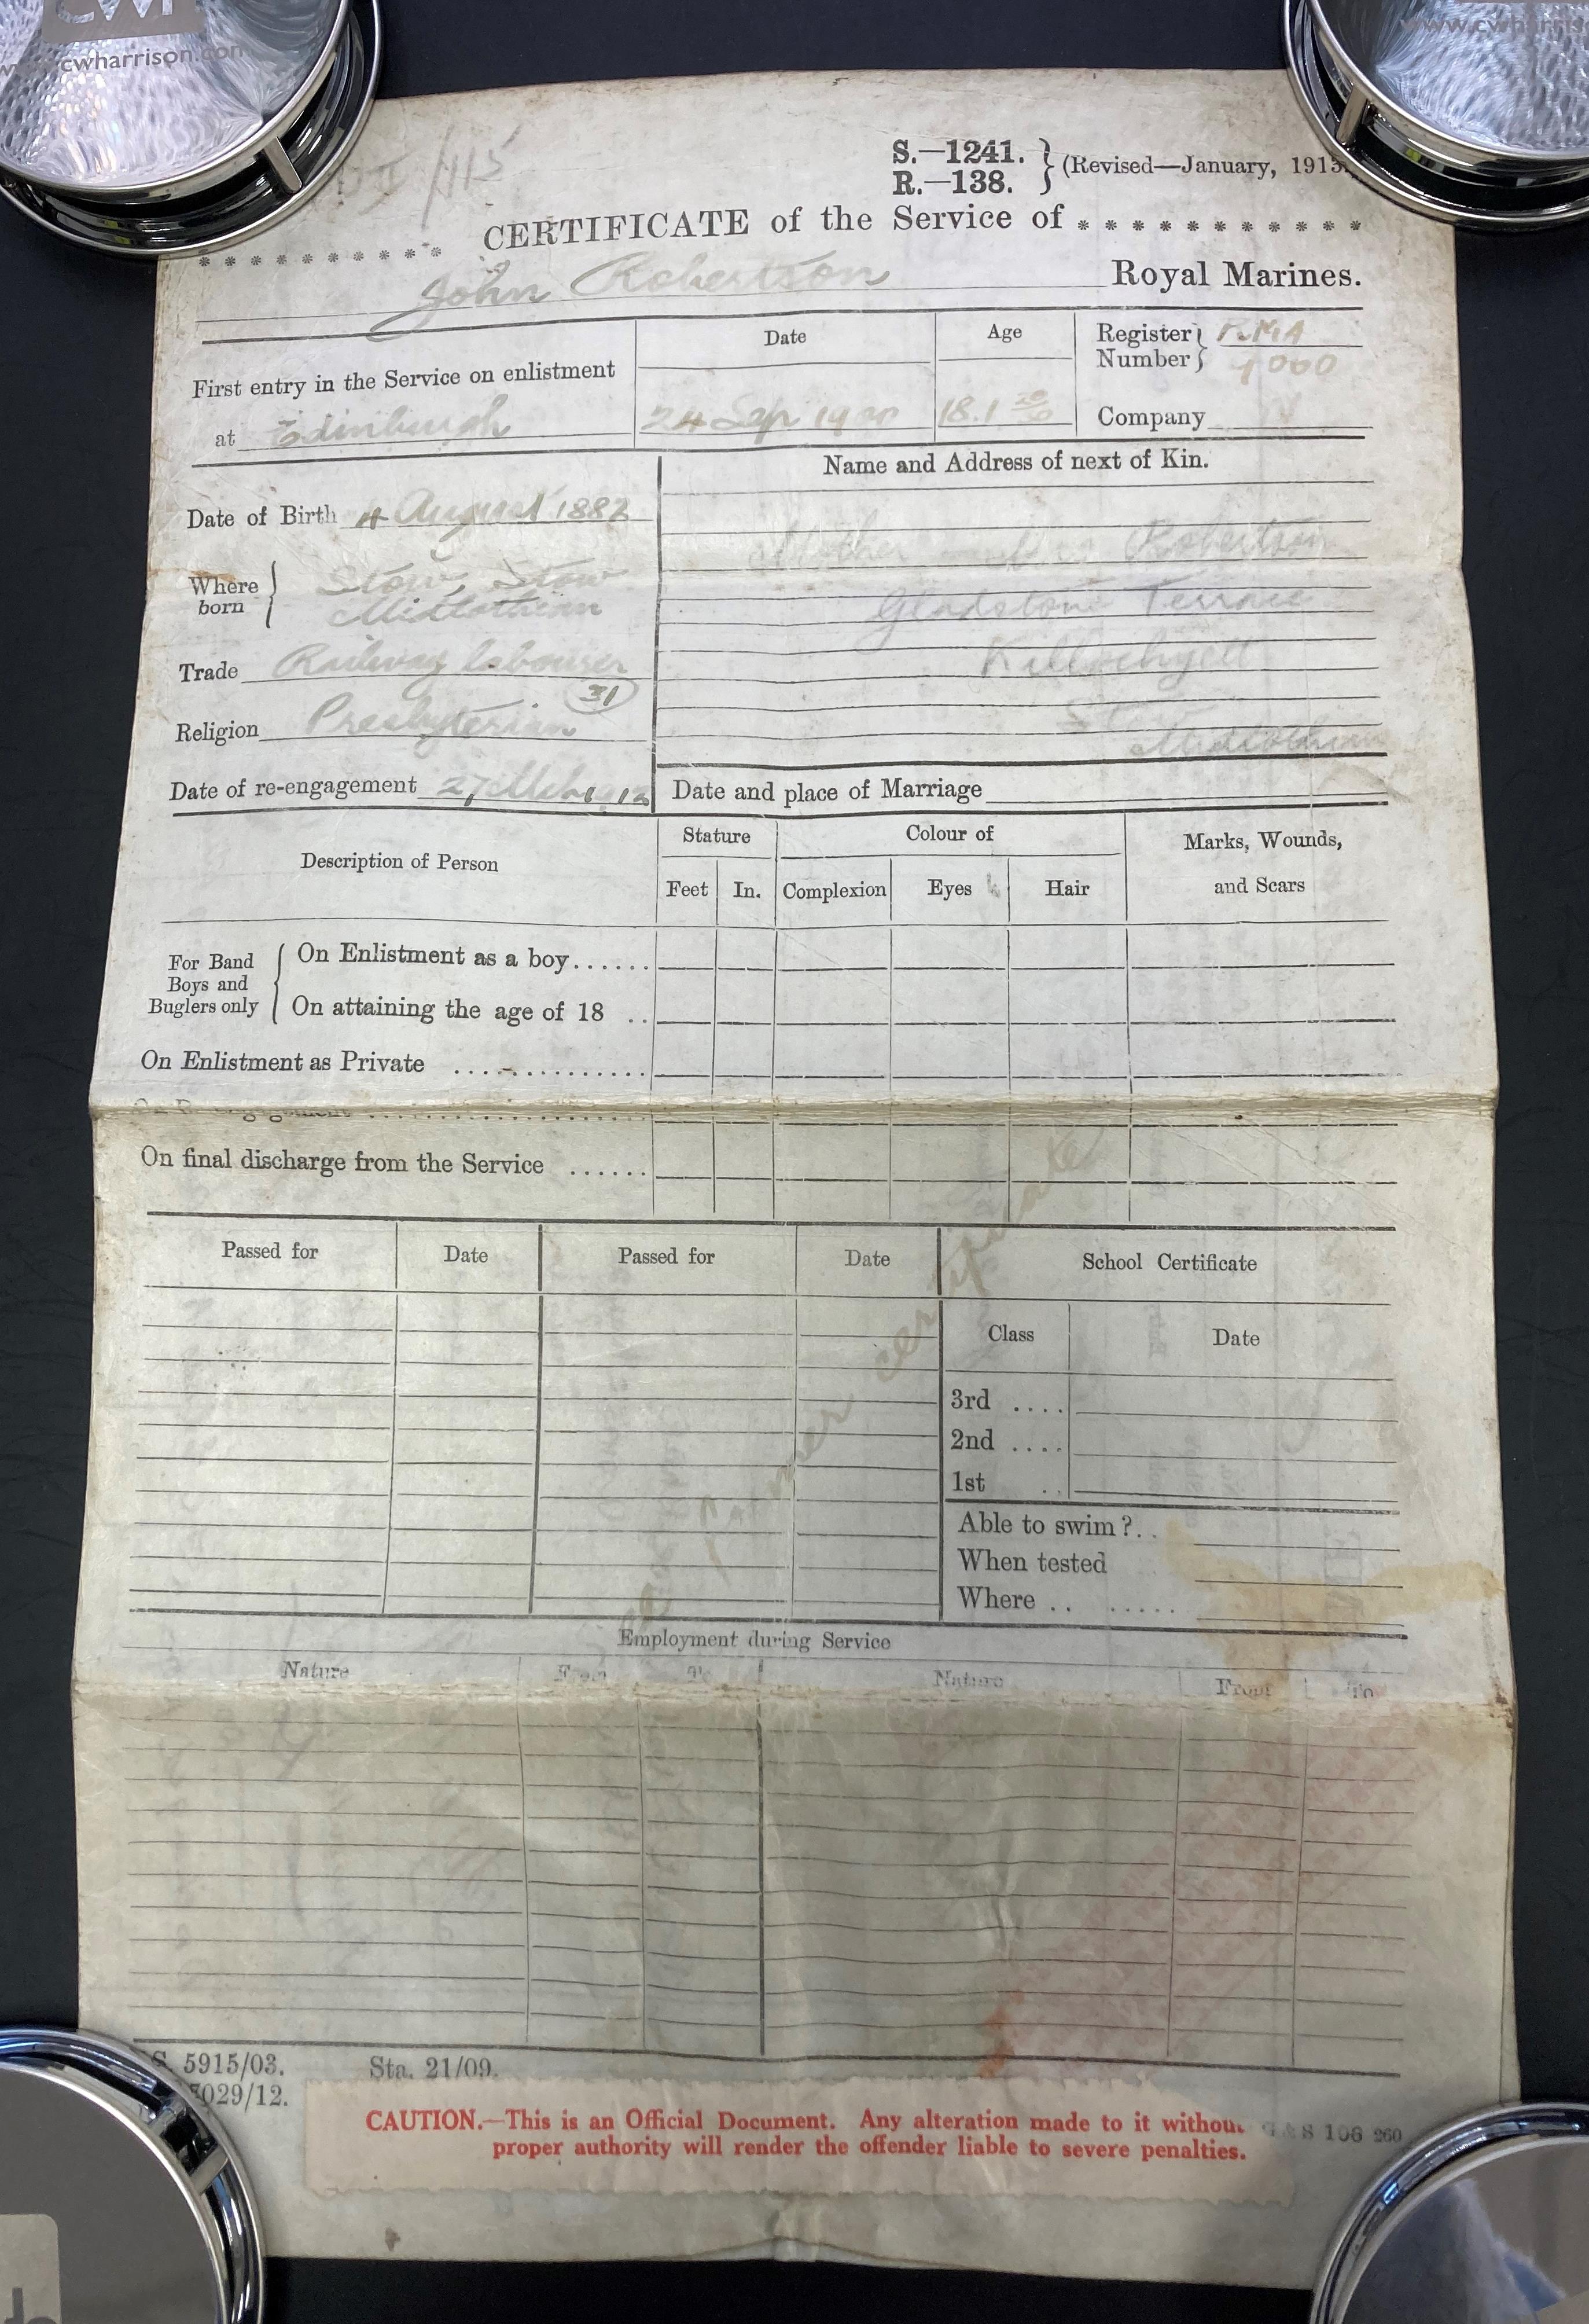 www.cwharrison.com
S.—1241.
R.—138.
(Revised—January, 1913
CERTIFICATE of the Service of
John Robertson Royal Marines.
Date
Age
Register Number RMA
First entry in the Service on enlistment
at Edinburgh
24 Sep 1900
18.1
Company
Name and Address of next of Kin.
Date of Birth 4 August 1882
Mother Mrs Robertson
Where born Stow, Stow
Midlothian
Gladstone Terrace
Trade Railway labourer
31
Religion Presbyterian
Stow
Midlothian
Date of re-engagement 27 Mch 1912
Date and place of Marriage
Description of Person
Stature
Colour of
Marks, Wounds,
and Scars
Feet In. Complexion Eyes Hair
For Band
Boys and
Buglers only
On Enlistment as a boy......
On attaining the age of 18 ..
On Enlistment as Private ..............
On final discharge from the Service ......
Passed for Date Passed for Date School Certificate
Class Date
3rd ....
2nd ....
1st ..
Able to swim?..
When tested
Where .. .....
see former certificate
Employment during Service
Nature From To Nature From To
S. 5915/03. Sta. 21/09.
7029/12.
CAUTION.—This is an Official Document. Any alteration made to it without
proper authority will render the offender liable to severe penalties.
G & S 106 260